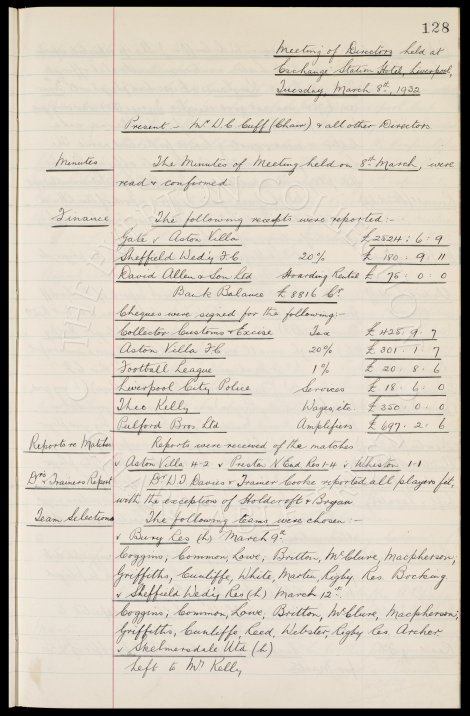 128
Meeting of Directors held at
Exchange Station Hotel, Liverpool,
Tuesday, March 8th, 1932
Present - Mr W. C. Cuff (Chair) & all other Directors
Minutes The Minutes of Meeting held on 8th March, were
read & confirmed
Finance The following receipts were reported:-
Gate v Aston Villa £2524 : 6 : 9
Sheffield Wed'y F.C 20% £ 180 . 9 . 11
David Allen & Son Ltd Hoarding Rental £ 75 : 0 : 0
Bank Balance £8816 Cr
Cheques were signed for the following:-
Collector Customs & Excise Tax £425 . 9 . 7
Aston Villa F.C 20% £ 301 . 1 . 7
Football League 1% £ 20 . 8 . 6
Liverpool City Police Services £ 18 . 6 . 0
Theo Kelly Wages, etc. £ 350 . 0 . 0
Pulford Bros Ltd Amplifiers £ 697 . 2 . 6
Reports re Matches Reports were received of the matches
v Aston Villa 4-2 v Preston N End Res 1-4 v Whiston 1-1
Drs & Trainers Report Dr W. J. Davies & Trainer Cooke reported all players fit,
with the exception of Holdcroft & Bryan
Team Selections The following teams were chosen :-
v Bury Res (h) March 9th
Coggins, Common, Lowe, Britton, McClure, Macpherson,
Griffiths, Cunliffe, White, Martin, Rigby Res. Bocking
v Sheffield Wed'y Res (h) March 12th
Coggins, Common, Lowe, Britton, McClure, Macpherson,
Griffiths, Cunliffe, Reed, Webster, Rigby Res. Archer
v Skelmersdale Utd (h)
Left to Mr Kelly